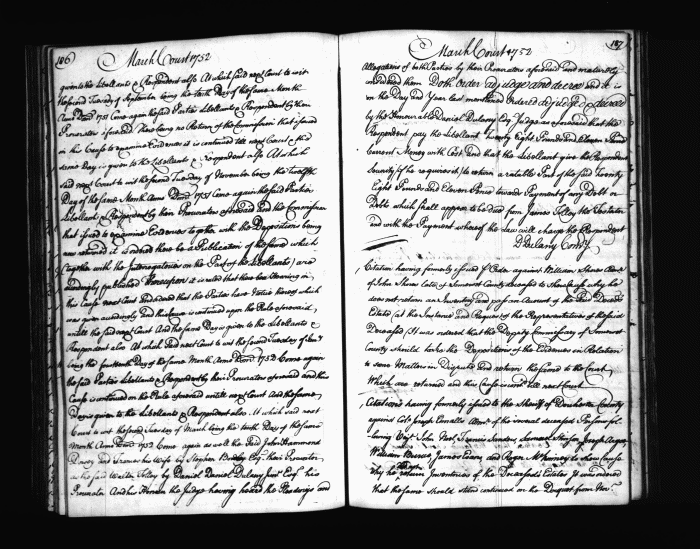 106
March Court 1752
given to the Libellants & Respondent also At which said next Court to wit
the second Tuesday of September being the tenth Day of the same Month
Anno Domini 1751 Came again the said Parties Libellants & Respondent by their
Procurators aforesaid. Now having no Return of the Commission that issued
in this Cause to examine Evidences it is continued till next Court & the
same Day is given to the Libellants & Respondent also At which
said next Court to wit the second Tuesday of November being the Twelfth
Day of the same Month Anno Domini 1751 Came again the said Parties
Libellants & Respondent by their Procurators aforesaid And the Commission
that issued to examine Evidences together with the Depositions being
now returned it is ordered there be a Publication of the same which
(together with the Interrogatories on the Part of the Libellants) are
accordingly published Whereupon it is ruled that there be a Hearing in
this Cause next Court And ordered that the Parties have Notice thereof which
was given accordingly And this Cause is continued upon the Rule aforesaid,
until the said next Court And the same Day is given to the Libellants &
Respondent also. At which said next Court to wit the second Tuesday of
being the fourteenth Day of the same Month Anno Domini 1752 Came again
the said Parties Libellants & Respondent by their Procurators aforesaid and this
Cause is continued on the Rule aforesaid until next Court And the same
Day is given to the Libellants & Respondent also. At which said next
Court to wit the second Tuesday of March being the tenth Day of the same
Month Anno Domini 1752 Came again as well the said John Hammond
Dorsey and Frances his Wife by Stephen Bordley Esqr. their Procurator
as the said Walter Tolley by Daniel Dulany Junr. Esqr. his
Procurator And his Honour the Judge having heard the Pleadings and
187
March Court 1752
Allegations of both Parties by their Procurators aforesaid and maturely
considered them Doth order adjudge and decree and it is
on the Day and Year last mentioned Ordered adjudged & decreed
by the Honourable Daniel Dulany Esqr. Judge as aforesaid that the
Respondent pay the Libellant Twenty Eight Pounds and Eleven Pence
current Money with Cost, and that the Libellant give the Respondent
Security (if he requires it) to return a ratable Part of the said Twenty
Eight Pounds and Eleven Pence towards Payment of any Debt or
Debts which shall appear to be due from James Tolley the Testator
and with the Payment whereof the Law will charge the Respondent
D Dulany Comry.
Citation having formerly issued ex Officio against William Shores Admr.
of John Shores late of Somerset County deceased to shew Cause why he
does not return an Inventory and pass an Account of the said Deceds.
Estate (at the Instance and Request of the Representatives of the said
Deceased) It was ordered that the Deputy Commissary of Somerset
County should take the Depositions of the Evidences in Relation
to some Matters in Dispute and return the same to the Court,
Which are returned and this Cause contd. till next Court.
Citations having formerly issued to the Sheriff of Dorchester County
against Colo. Joseph Ennalls Admr. of the several deceased Persons fol-
lowing Vizt. John Francis Sanders, Samuel Joseph
William James and Roger McKinney to shew Cause
why he don't return Inventories of the Deceaseds Estates It was ordered
that the same should stand continued on the Docquet from